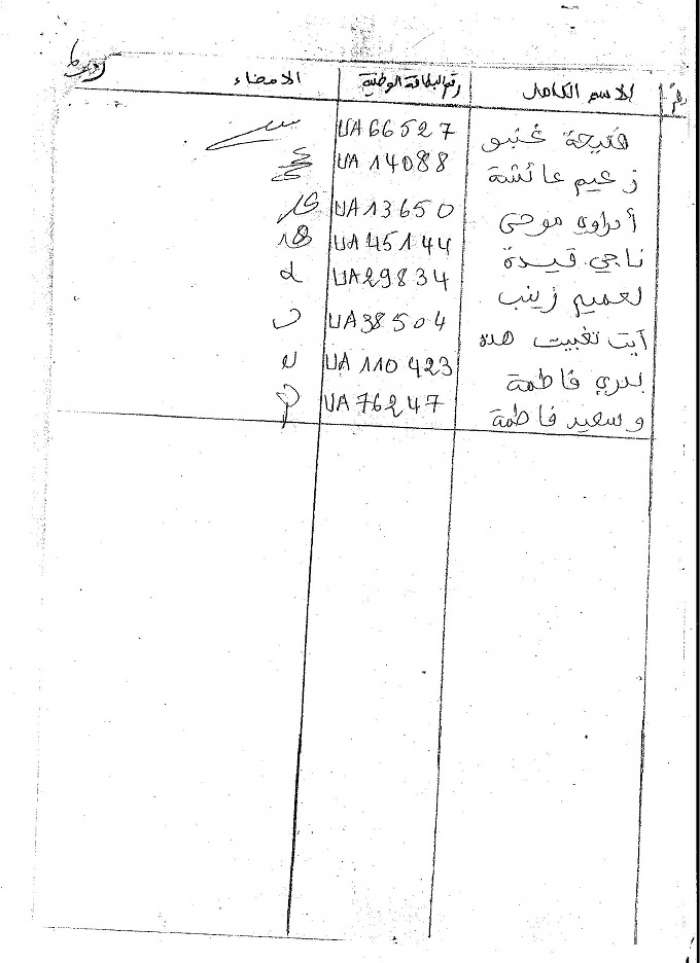 رقم الاسم الكامل رقم البطاقة الوطنية الامضاء
فتيحة غنبو UA66527
زعيم عائشة UA14088
أمراوي موحى UA13650
ناجي قيدة UA45144
لعميم زينب UA29834
آيت تغبيت هدة UA38504
بدري فاطمة UA110423
وسعيد فاطمة UA76247